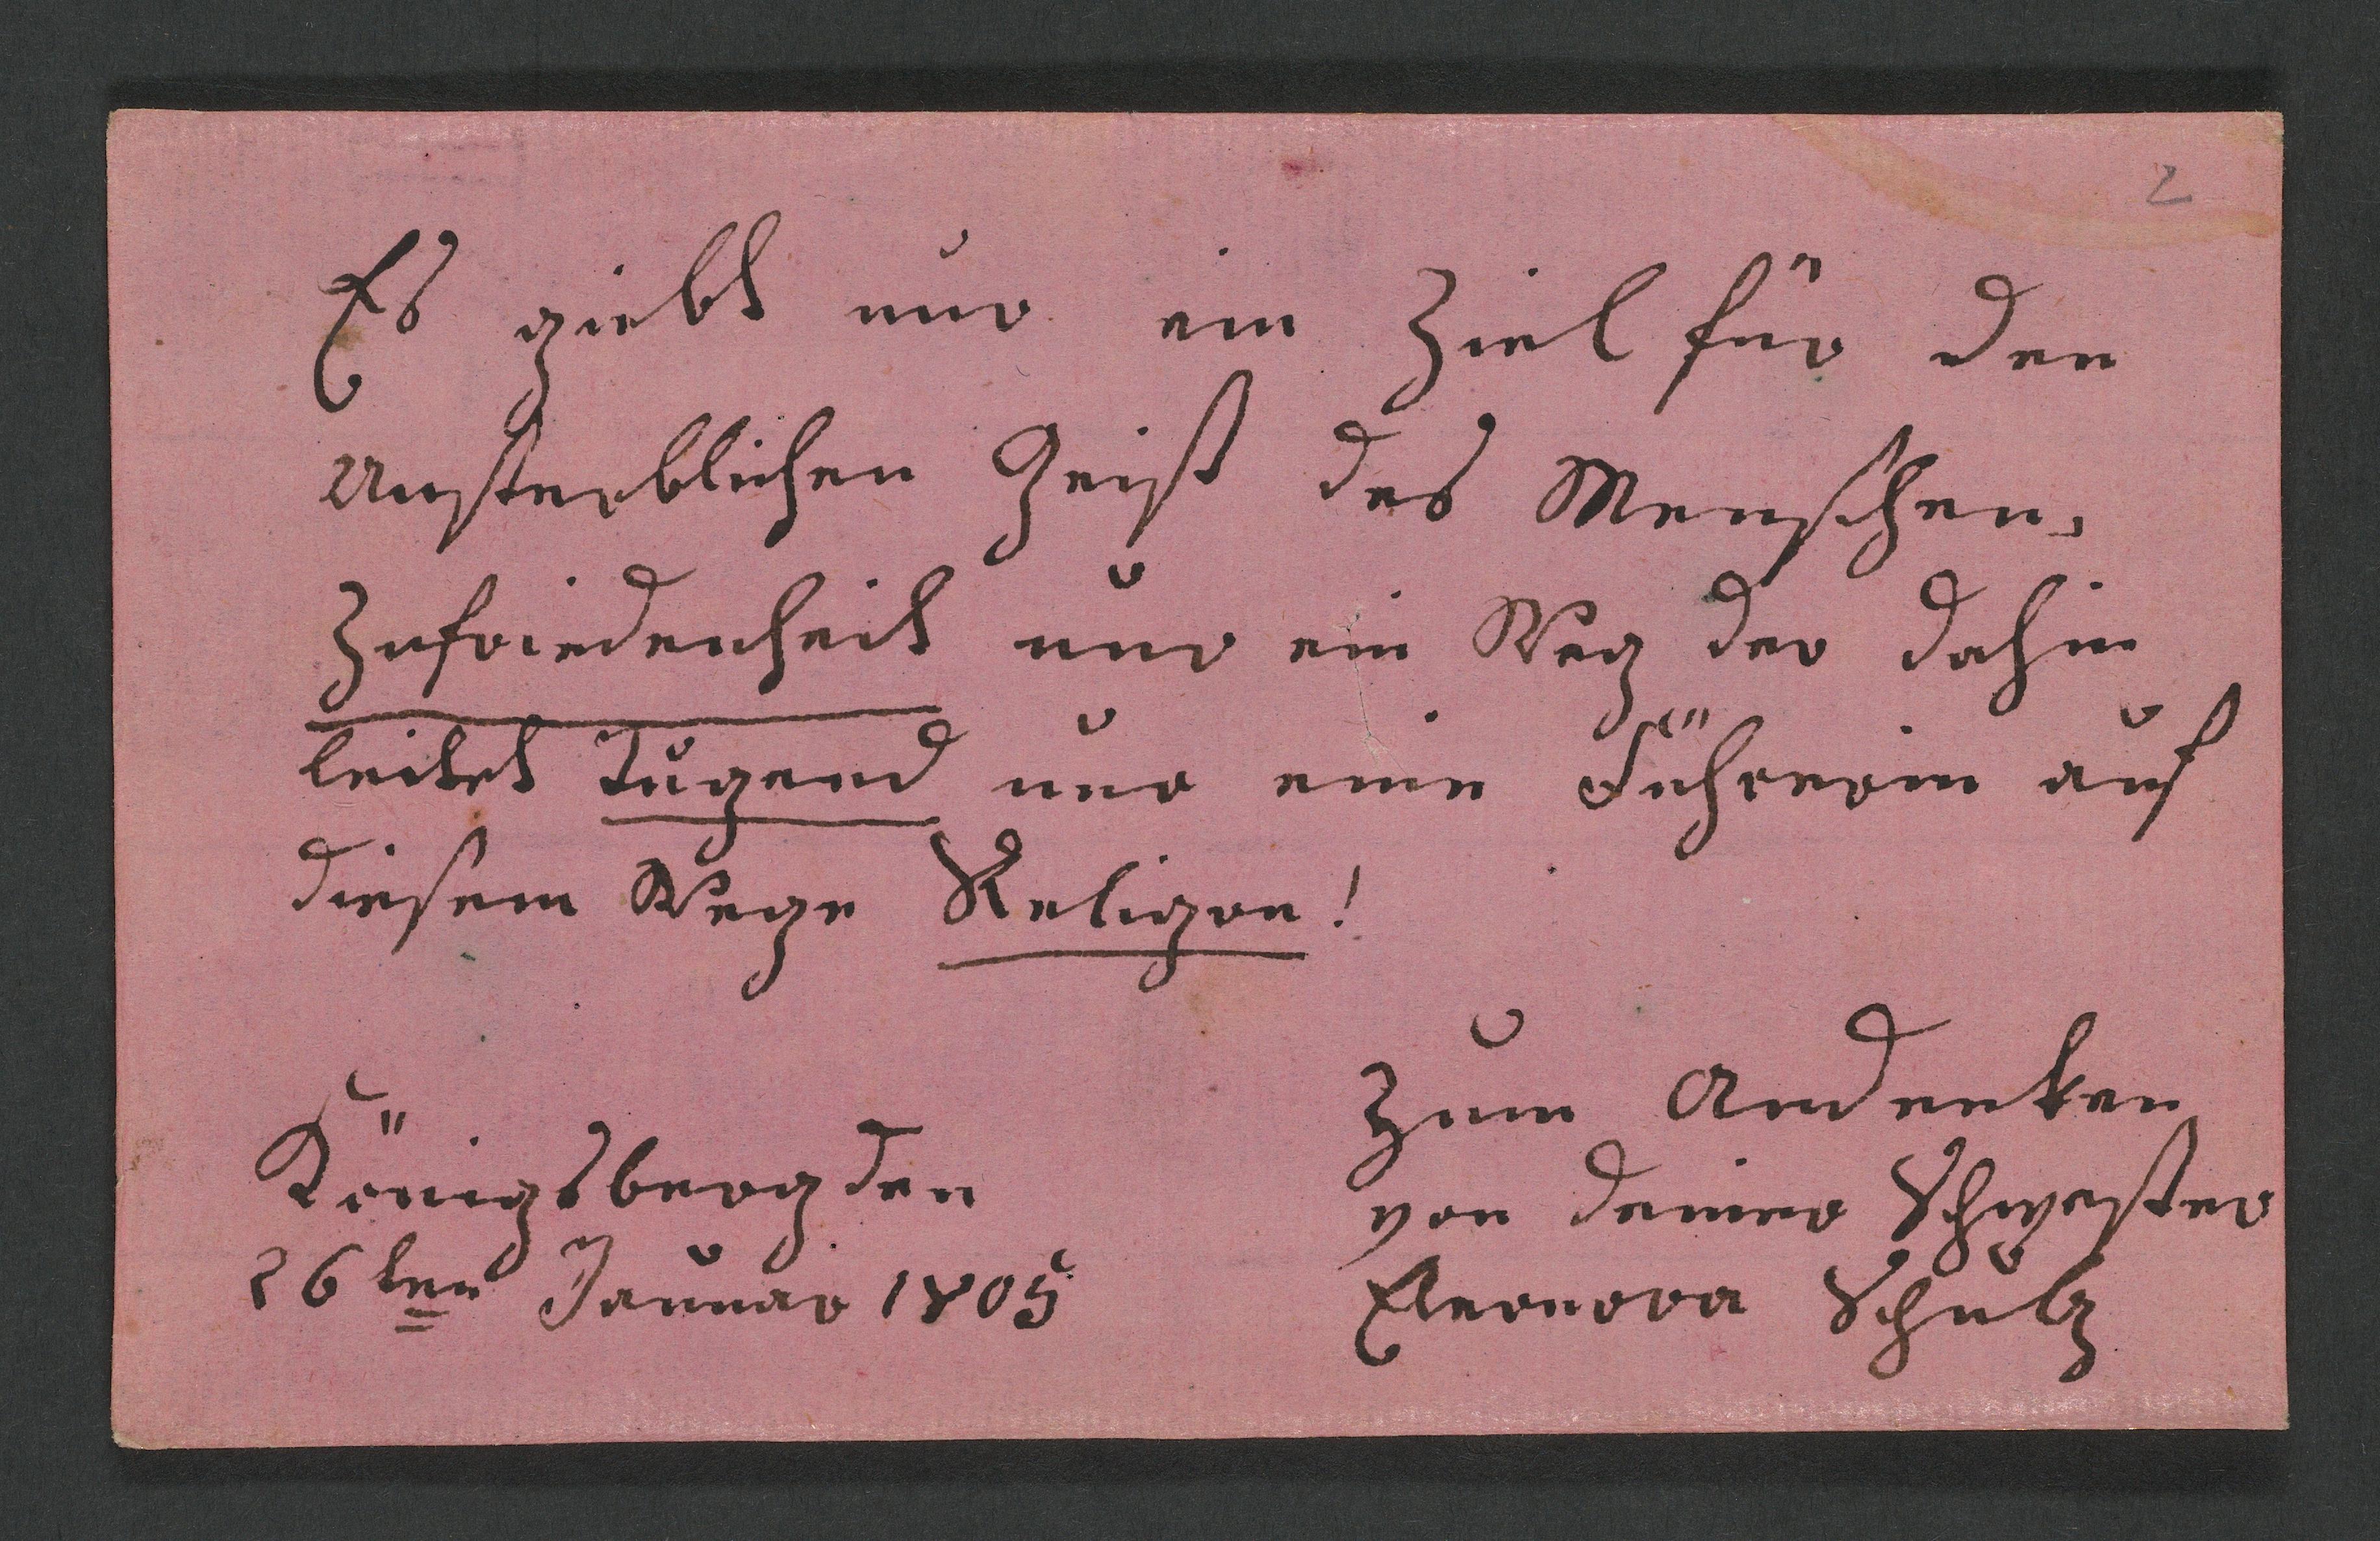 2
Es giebt nur ein Ziel für den
Unsterblichen Geist des Menschen,
Zufriedenheit nur ein Weg der dahin
leitet Tugend nur eine Führerin auf
diesem Wege Religon!
Zum Andenken
von deiner Schwester
Eleonora Schulz
Königsberg den
26ten Januar 1805